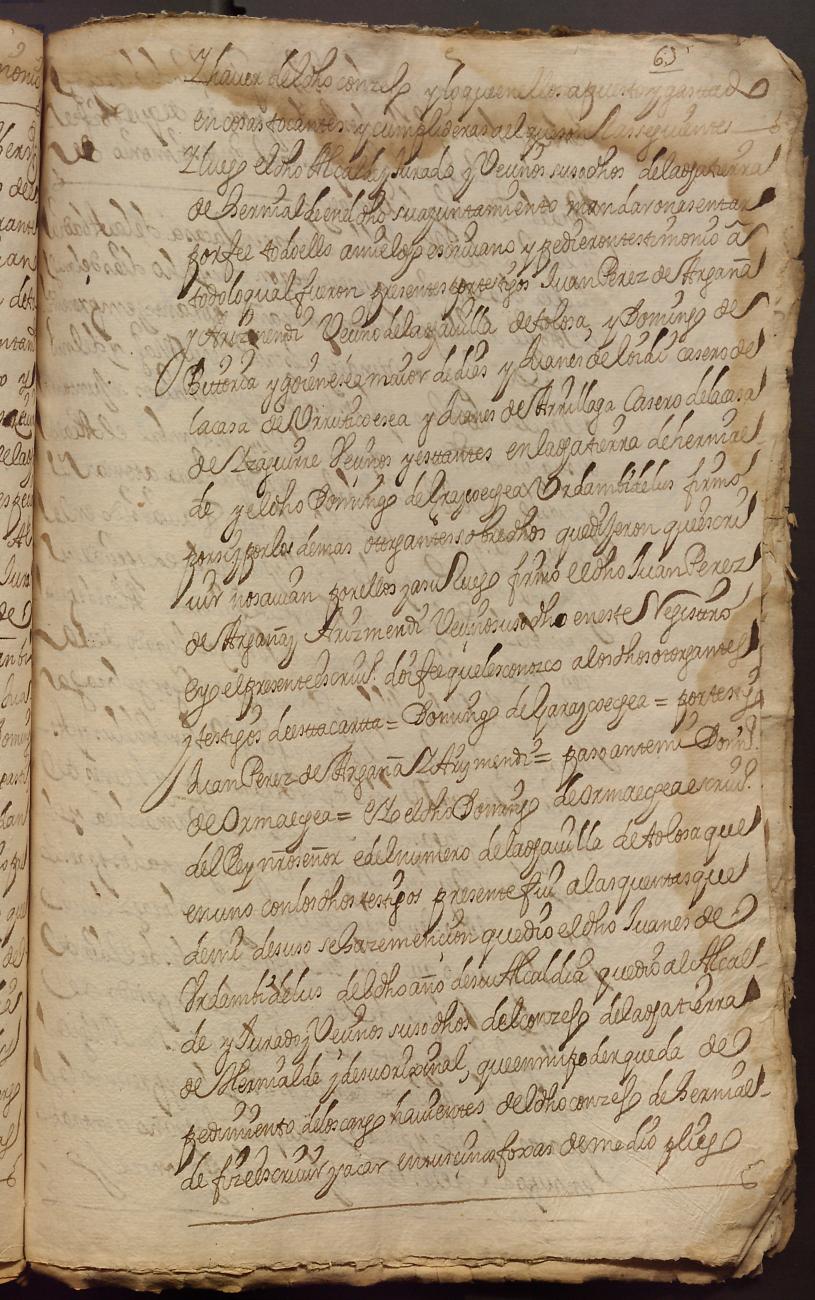 63
Y haver del dho conzejo y lo que en ellos a puesto y gastado
en cosas tocantes y cumplideras a el que son las seguientes
Y luego el dho Alcalde y Jurado y Veçinos susodhos de la dha tierra
de Hernialde en el dho su ayuntamiento mandaron asentar
por fee todo ello a mi el dho escriuano y pedieron testimonio a
todo lo qual fueron presentes por testigos Juan Perez de Argaña
y Arizmendi Veçino de la dha villa de tolosa, y Domingo de
Bitoria y goienesea maior de dias y Juanes de casero de
la casa de Vrruticoesea y Juanes de Arrillaga Casero de la casa
de Yzaguirre Veçinos y estantes en la dha tierra de hernial-
de y el dho Domingo de Garaycoegea Vrdambidelus firmo
por si y por los demas otorgantes sobredhos que dijeron que escri
uir no sauian por ellos y a su Ruego firmo el dho Juan Perez
de Argaña y Arizmendi Veçino susodho en este Registro
e yo el presente escriu.º doi fee que les conozco a los dhos otorgantes
y testigos de esta carta = Domingo de Garaycoegea = por testigo
Juan Perez de Argaña Y Arizmendi = paso ante mi Dom.º
de Ormaegea = E Yo el dho Domingo de Ormaegea escriu.º
del Rey nro señor e del numero de la dha villa de tolosa que
en uno con los dhos testigos presente fui a las quentas que
de mi desuso se haze mençion que dio el dho Juanes de
Vrdambidelus del dho año de su Alcaldia que dio al Alcal-
de y Jurado y Veçinos susodhos del conzejo de la dha tierra
de Hernialde y de su orixinal, que en mi poder queda de
pedimiento de los cargo hauientes del dho conzejo de Hernial-
de fize escriuir y sacar en foxas de medio pliego